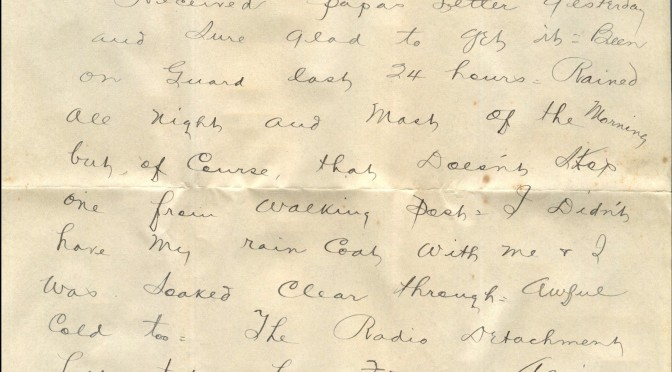 Received Papas Letter Yesterday
and Sure Glad to Get it = Been
on Guard last 24 hours = Rained
all night and Most of the Morning
but, of Course, that Doesn't Stop
one from Walking Post = I Didn't
have My rain Coat With me & I
Was Soaked Clear through = Awful
Cold too = The Radio Detachment